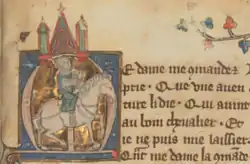 E dame me gmande
prie. Que vne auen
ture li die. Qui auint
au bon cheualier. Et
ie ne puis mie laissier
Que me dame la gmade